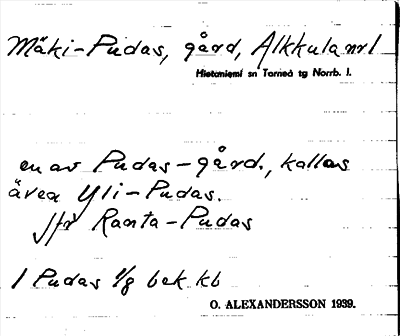 Mäki-Pudas, gård, Alkkula nr 1
Hietaniemi sn Torneå tg Norrb. l.
en av Pudas-gård., kallas
även Yli-Pudas.
Jfr Ranta-Pudas
1 Pudas 1/8 bek kb
O. ALEXANDERSSON 1939.